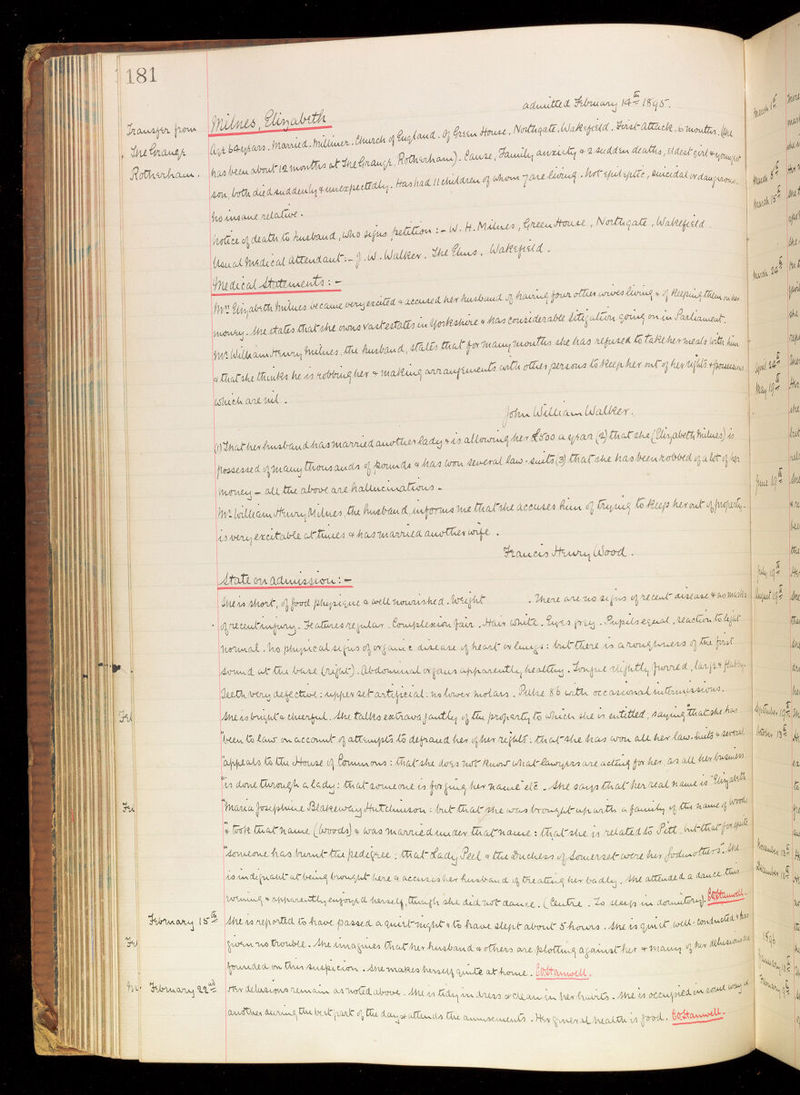 181
admitted February 14th 1895.
Transfer from
The Grange
Rotherham.
Milnes, Elizabeth
Age 64 years. Married. Milliner. Church of England. Of Green House, Northgate, Wakefield. First attack. 6 months. (She
has been about 12 months at The Grange, Rotherham). Cause, Family anxiety & 2 sudden deaths, eldest girl & youngest
son, both died suddenly & unexpectedly. Has had 11 children of whom 7 are living. Not epileptic, suicidal or dangerous.
No insane relative.
Notice of death to husband, who signs petition :- W. H. Milnes, Green House, Northgate, Wakefield.
Usual Medical Attendant :- J. W. Walker. The Elms. Wakefield.
Medical Statements :-
Mrs Elizabeth Milnes became very excited & accused her husband of having four other wives living & of keeping them on her
money. She states that she owns vast estates in Yorkshire & has considerable litigation going on in Parliament.
Mr William Henry Milnes, the husband, states that for many months she has refused to take her meals with him
& that she thinks he is robbing her & making arrangements with other persons to keep her out of her rights & possessions
which are nil.
John William Walker.
(1) That her husband has married another lady & is allowing her £500 a year (2) that she (Elizabeth Milnes) is
possessed of many thousands of pounds & has won several law-suits (3) that she has been robbed of a lot of her
money - all the above are hallucinations -
Mr William Henry Milnes, the husband, informs me that she accuses him of trying to keep her out of property.
is very excitable at times & has married another wife.
Francis Henry Wood.
State on admission :-
She is short, of good physique & well nourished. Weight . There are no signs of recent disease & no marks
of recent injury. Features regular. Complexion fair. Hair white. Eyes grey. Pupils equal, reaction to light
normal. No physical signs of organic disease of heart or lungs : but there is a roughness of the first
sound at the base (right). Abdominal organs apparently healthy. Tongue slightly furred, large & flabby.
Teeth very defective : upper set artificial : no lower molars. Pulse 86 with occasional intermissions.
She is bright & cheerful. She talks extravagantly of the property to which she is entitled, saying "that she has
"been to law on account of attempts to defraud her of her rights : that she has won all her law-suits & several
"appeals to the House of Commons : that she does not know what lawyers are acting for her as all her business
"is done through a lady : that someone is forging her name" etc. She says that her real name is "Elizabeth
"Maria Josephine Blakeway Hutchinson : but that she was brought up with a family of the name of Woods
"& took that name (Woods) & was married under that name : that she is related to Pitt but that for spite
"someone has burnt the pedigree ; that Lady Peel & the Duchess of Somerset were her godmothers". She
is indignant at being brought here & accuses her husband of treating her badly. She attended a dance this
evening & apparently enjoyed herself, though she did not dance. (Centre. To sleep in dormitory). CoStanwell.
February 15th She is reported to have passed a quiet night & to have slept about 5 hours. She is quiet, well-conducted & has
given no trouble. She imagines that her husband & others are plotting against her & many of her delusions are
founded on this suspicion. She makes herself quite at home. CoStanwell.
February 22nd Her delusions remain as noted above. She is tidy in dress & clean in her habits. She is occupied in some way or
another during the best part of the day & attends the amusements. Her general health is good. CoStanwell.
March 1st
March 8th
March 15th
March 22nd
April 24th
May 19th
June 19th
July 19th
August 19th
September 19th
October 13th
November 13th
December 18th
1896
January
February